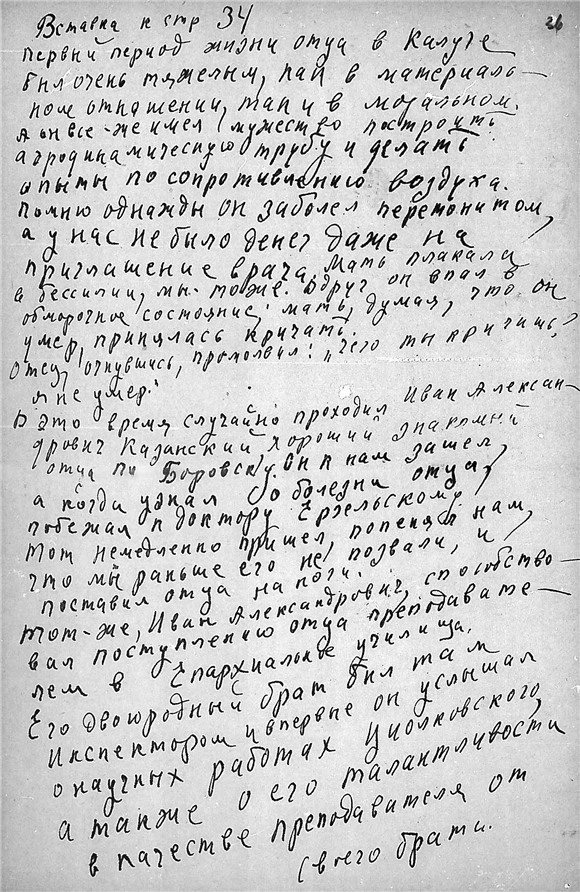 Вставка к стр 34
26
Первый период жизни отца в Калуге
был очень тяжелым, как в материаль-
ном отнашении, так и в моральном.
А он все-же имел мужество построить
аэродинамическую трубу и делать
опыты по сопротивлению воздуха.
Помню однажды он заболел перетонитом,
а у нас не было денег даже на
приглашение врача. Мать плакала
в бессилии, мы тоже. Вдруг он впал в
обморочное состояние; мать, думая, что он
умер, принялась кричать.
Отец, очнувшись, промолвил: „Чего ты кричишь?
я не умер."
В это время случайно проходил Иван Алексан-
дрович Казанский, хороший знакомый
отца по Боровску. Он к нам зашел,
а когда узнал о болезни отца,
побежал к доктору Ергельскому
Тот немедленно пришел, попенял нам,
что мы раньше его не позвали, и
поставил отца на ноги.
Тот-же, Иван Александрович, способство-
вал поступлению отца преподавате-
лем в Епархиальное училища.
Его двоюродный брат был там
Инспектором и впервые он услышал
о научных работах Циолковского,
а также о его талантливости
в качестве преподавателя от
своего брата.